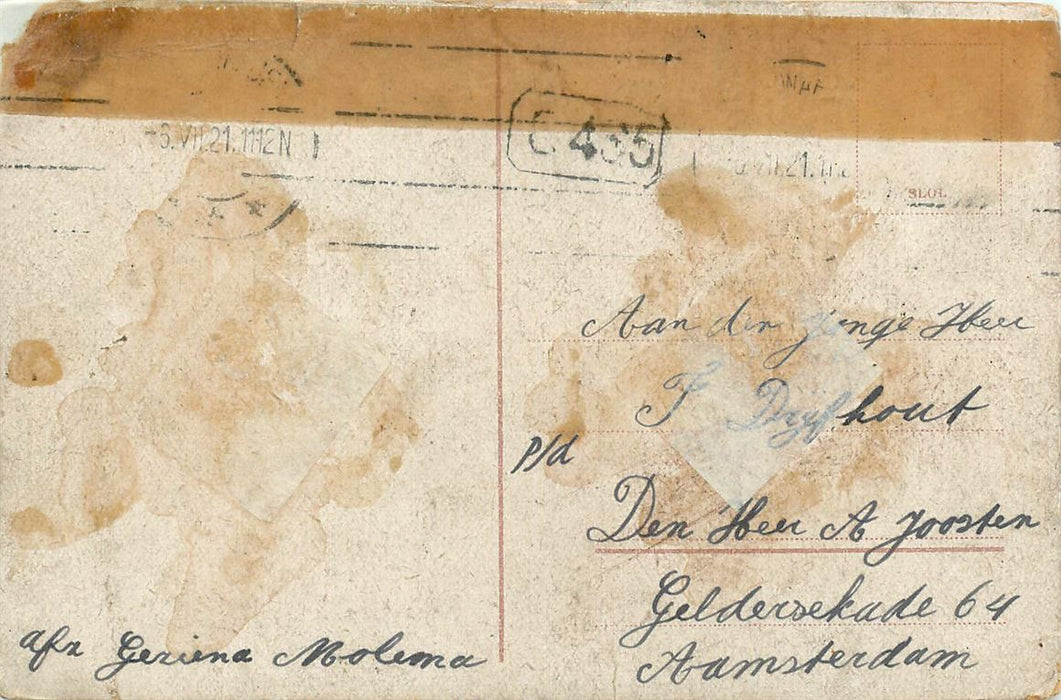 -6.VII.21.1112N
C 435
VII.21.
SLOT
Aan den jonge Heer
J Dijkhout
p/d
Den Heer A Joosten
Geldersekade 64
Aamsterdam
afz Geziena Molema